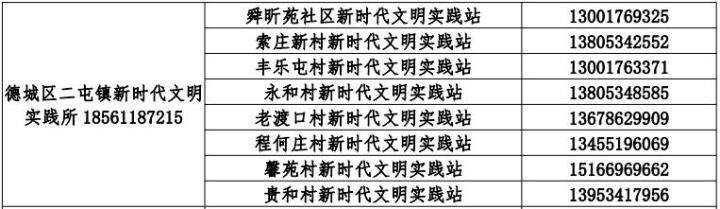 舜昕苑社区新时代文明实践站 13001769325
索庄新村新时代文明实践站 13805342552
丰乐屯村新时代文明实践站 13001763371
德城区二屯镇新时代文明
实践所 18561187215
永和村新时代文明实践站 13805348585
老渡口村新时代文明实践站 13678629909
程何庄村新时代文明实践站 13455196069
馨苑村新时代文明实践站 15166969662
贵和村新时代文明实践站 13953417956